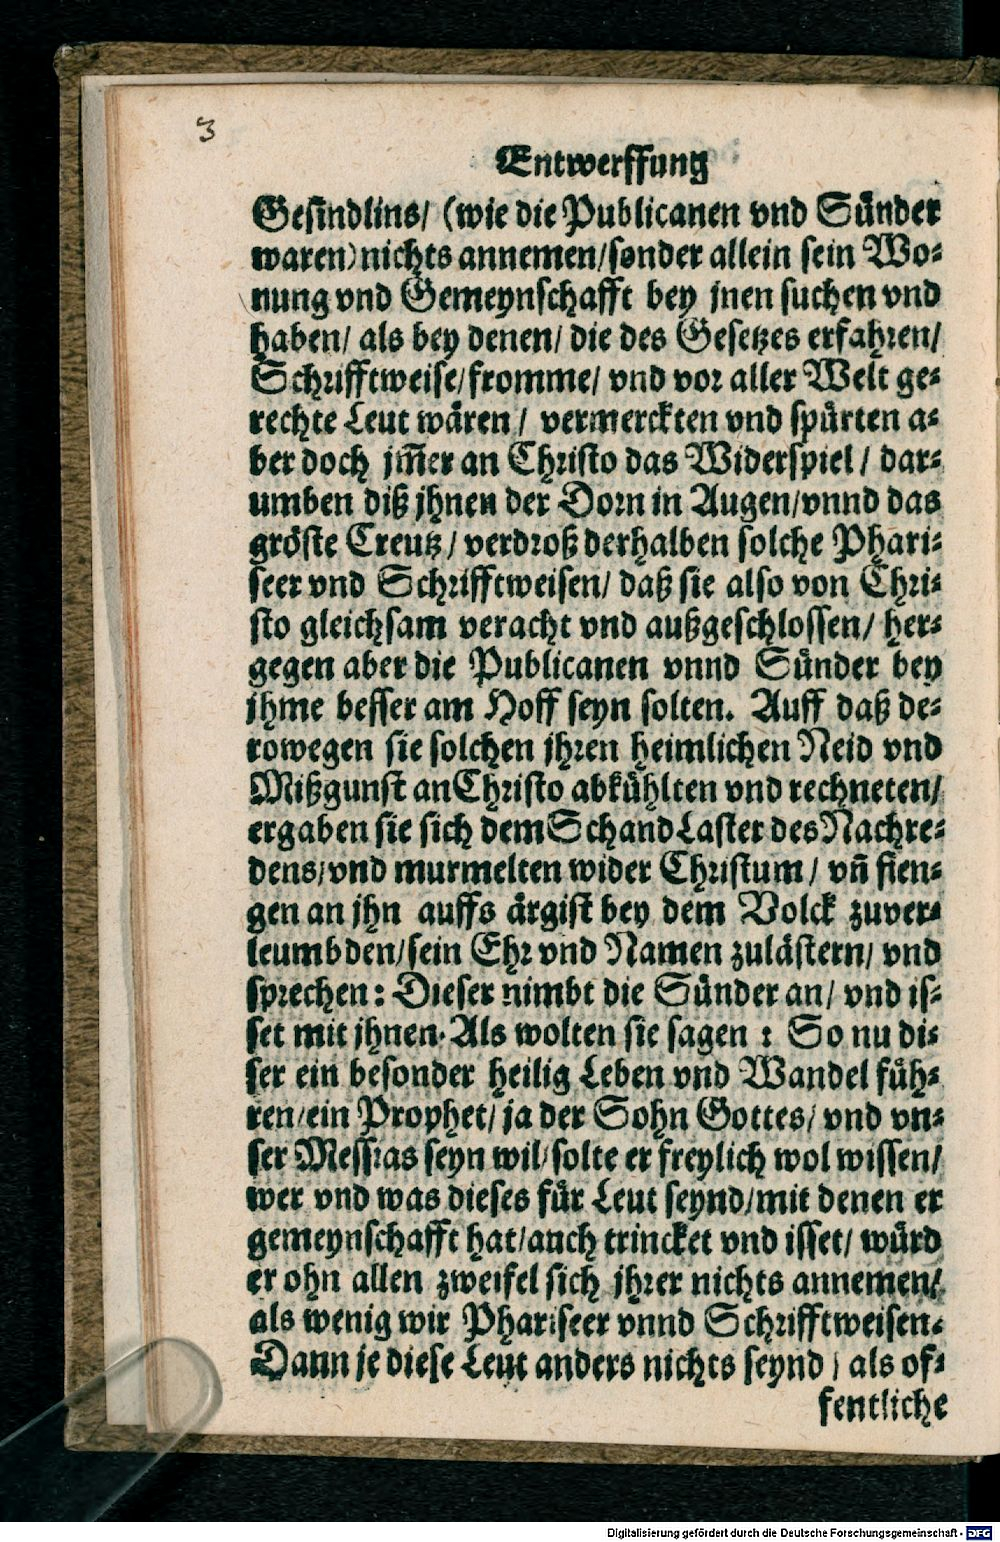 3
Entwerffung
Gesindlins/ (wie die Publicanen vnd Sünder
waren) nichts annemen/ sonder allein sein Wo⸗
nung vnd Gemeynschafft bey jnen suchen vnd
haben/ als bey denen/ die des Gesetzes erfahren/
Schrifftweise/ fromme/ vnd vor aller Welt ge⸗
rechte Leut wåren/ vermerckten vnd spůrten a⸗
ber doch jm̃er an Christo das Widerspiel/ dar⸗
umben diß jhnen der Dorn in Augen/ vnnd das
gröste Creutz/ verdroß derhalben solche Phari⸗
seer vnd Schrifftweisen/ daß sie also von Chri⸗
sto gleichsam veracht vnd außgeschlossen/ her⸗
gegen aber die Publicanen vnnd Sünder bey
jhme besser am Hoff seyn solten. Auff daß de⸗
rowegen sie solchen jhren heimlichen Neid vnd
Mißgunst an Christo abkůhlten vnd rechneten/
ergaben sie sich dem Schand Laster des Nachre⸗
dens/ vnd murmelten wider Christum/ vñ fien⸗
gen an jhn auffs årgist bey dem Volck zuver⸗
leumbden/ sein Ehr vnd Namen zulåstern/ vnd
sprechen: Dieser nimbt die Sünder an/ vnd is⸗
set mit jhnen. Als wolten sie sagen: So nu di⸗
ser ein besonder heilig Leben vnd Wandel fůh⸗
ren/ ein Prophet/ ja der Sohn Gottes/ vnd vn⸗
ser Messias seyn wil/ solte er freylich wol wissen/
wer vnd was dieses fůr Leut seynd/ mit denen er
gemeynschafft hat/ auch trincket vnd isset/ wůrd
er ohn allen zweifel sich jhrer nichts annemen/
als wenig wir Phariseer vnnd Schrifftweisen.
Dann je diese Leut anders nichts seynd/ als of⸗
fentliche
Digitalisierung gefördert durch die Deutsche Forschungsgemeinschaft - DFG